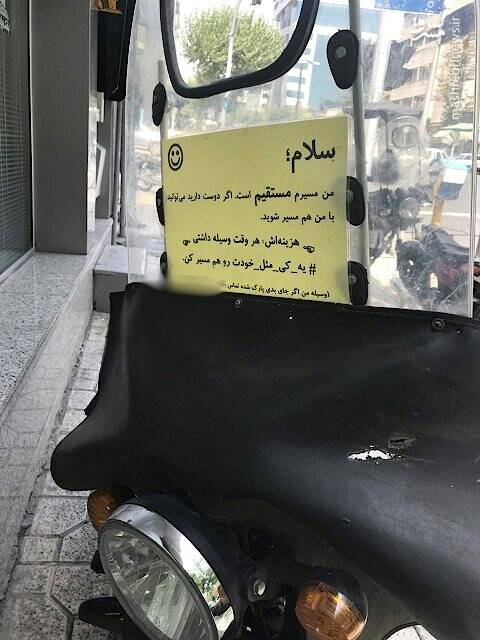 سلام؛
من مسیرم مستقیم است. اگر دوست دارید می‌توانید
با من هم مسیر شوید.
هزینه‌اش: هر وقت وسیله داشتی
# یه_کی_مثل_خودت رو هم مسیر کن.
(وسیله من اگر جای بدی پارک شده تماس
mashreghnews.ir